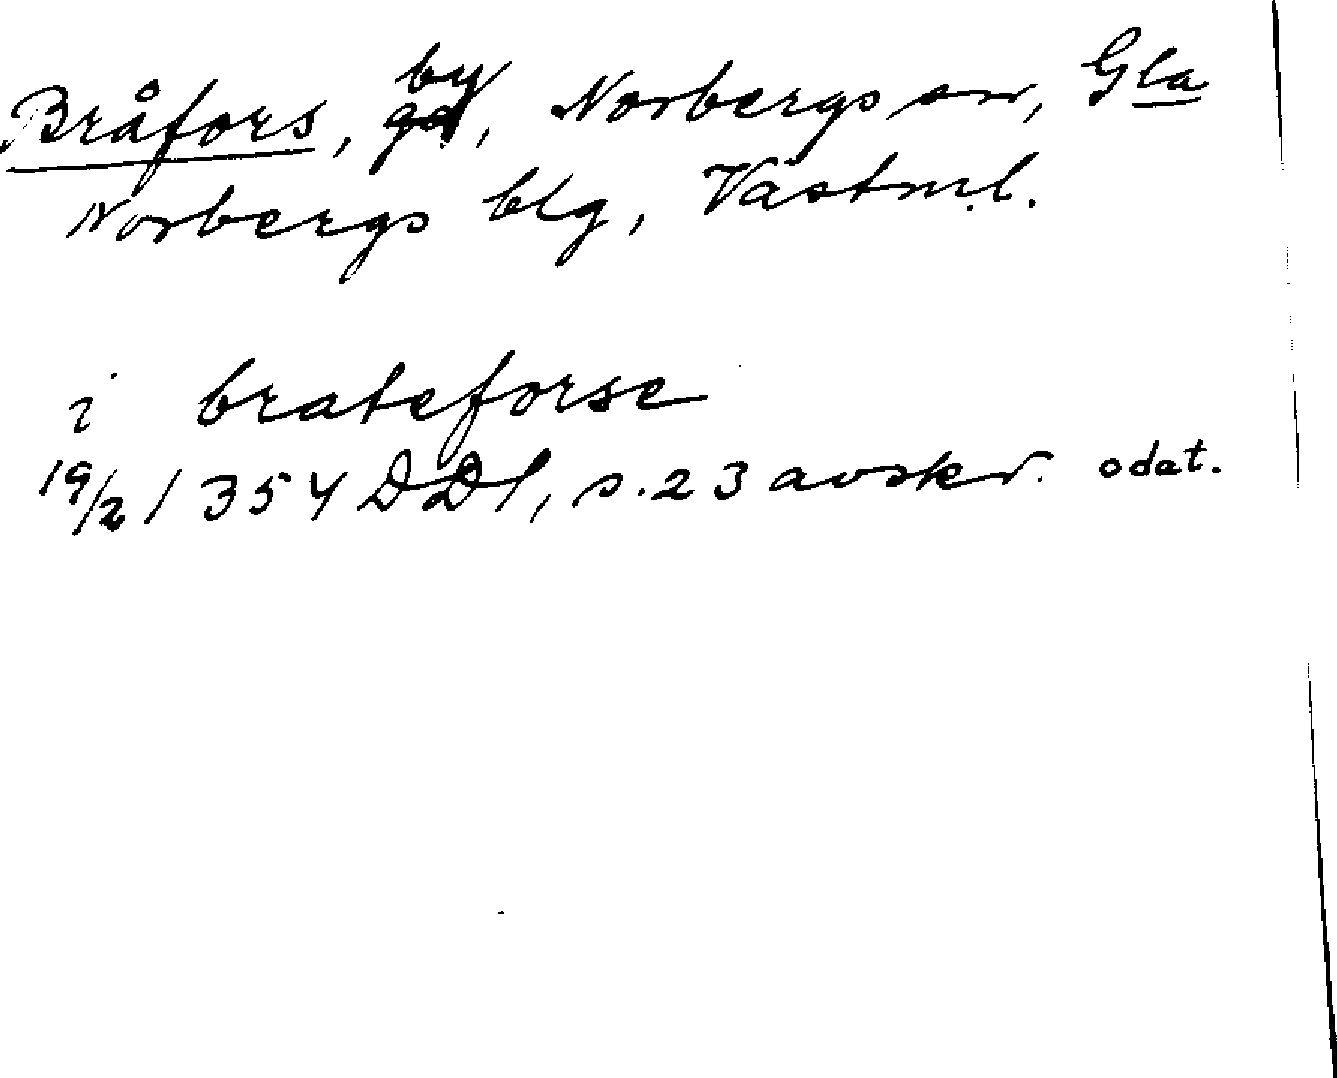 Bråfors, by, Norbergs sn, Gla
Norbergs blg, Västml.
i brateforse
19/2 1354 DD1, s. 23 avskr. odat.